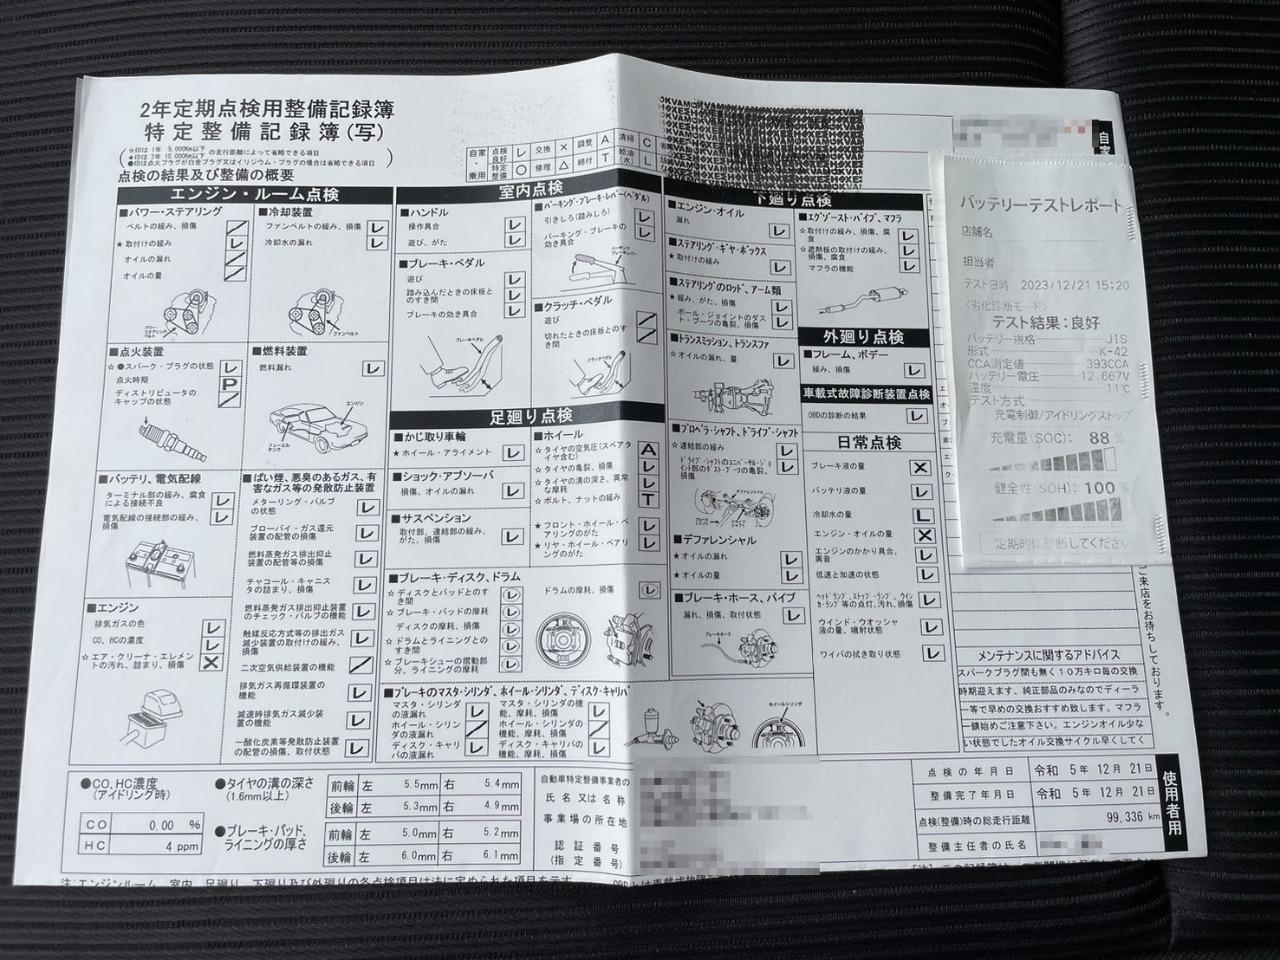 2年定期点検用整備記録簿
特定整備記録簿(写)
☆印は1年 5,000Km以下
★印は2年 10,000Km以下 の走行距離によって省略できる項目
●印は点火プラグが白金プラグ又はイリジウム・プラグの場合は省略できる項目
点検の結果及び整備の概要
自家・乗用
点検良好 レ 交換 × 調整 A 清掃 C
特定整備 ○ 修理 △ 締付 T 給油(水) L
エンジン・ルーム点検
■パワー・ステアリング
ベルトの緩み、損傷
★取付けの緩み
オイルの漏れ
オイルの量
パワーステアリングベルト
■冷却装置
ファンベルトの緩み、損傷 レ
冷却水の漏れ レ
ファンベルト
■点火装置
☆●スパーク・プラグの状態 レ
点火時期 P
ディストリビュータのキャップの状態
■燃料装置
燃料漏れ レ
エンジン
フューエルタンク
■バッテリ、電気配線
ターミナル部の緩み、腐食による接続不良 レ
電気配線の接続部の緩み、損傷 レ
■エンジン
排気ガスの色 レ
CO、HCの濃度 レ
☆エア・クリーナ・エレメントの汚れ、詰まり、損傷 ×
■ばい煙、悪臭のあるガス、有害なガス等の発散防止装置
メターリング・バルブの状態 レ
ブローバイ・ガス還元装置の配管の損傷 レ
燃料蒸発ガス排出抑止装置の配管等の損傷 レ
チャコール・キャニスタの詰まり、損傷 レ
燃料蒸発ガス排出抑止装置のチェック・バルブの機能 レ
触媒反応方式等の排出ガス減少装置の取付けの緩み、損傷 レ
二次空気供給装置の機能
排気ガス再循環装置の機能 レ
減速時排気ガス減少装置の機能 レ
一酸化炭素等発散防止装置の配管の損傷、取付状態 レ
室内点検
■ハンドル
操作具合 レ
遊び、がた レ
■ブレーキ・ペダル
遊び レ
踏み込んだときの床板とのすき間 レ
ブレーキの効き具合 レ
ブレーキペダル
■パーキング・ブレーキ・レバー(ペダル)
引きしろ(踏みしろ) レ
パーキング・ブレーキの効き具合 レ
パーキングブレーキレバー
■クラッチ・ペダル
遊び
切れたときの床板とのすき間
クラッチペダル
足廻り点検
■かじ取り車輪
★ホイール・アライメント レ
■ショック・アブソーバ
損傷、オイルの漏れ レ
■サスペンション
取付部、連結部の緩み、がた、損傷 レ
■ホイール
☆タイヤの空気圧(スペアタイヤ含む) A
☆タイヤの亀裂、損傷 レ
☆タイヤの溝の深さ、異常な摩耗 レ
☆ボルト、ナットの緩み T
★フロント・ホイール・ベアリングのがた レ
★リヤ・ホイール・ベアリングのがた レ
■ブレーキ・ディスク、ドラム
☆ディスクとパッドとのすき間 レ
☆ブレーキ・パッドの摩耗 レ
ディスクの摩耗、損傷 レ
☆ドラムとライニングとのすき間 レ
☆ブレーキシューの摺動部分、ライニングの摩耗 レ
ドラムの摩耗、損傷 レ
■ブレーキのマスタ・シリンダ、ホイール・シリンダ、ディスク・キャリパ
マスタ・シリンダの液漏れ レ
ホイール・シリンダの液漏れ
ディスク・キャリパの液漏れ レ
マスタ・シリンダの機能、摩耗、損傷 レ
ホイール・シリンダの機能、摩耗、損傷
ディスク・キャリパの機能、摩耗、損傷 レ
ホイールシリンダ
下廻り点検
■エンジン・オイル
漏れ レ
■ステアリング・ギヤ・ボックス
★取付けの緩み レ
■ステアリングのロッド、アーム類
★緩み、がた、損傷 レ
ボール・ジョイントのダスト・ブーツの亀裂、損傷 レ
■トランスミッション、トランスファ
☆オイルの漏れ、量 レ
■プロペラ・シャフト、ドライブ・シャフト
☆連結部の緩み レ
ドライブ・シャフトのユニバーサル・ジョイント部のダスト・ブーツの亀裂、損傷 レ
■デファレンシャル
★オイルの漏れ レ
★オイルの量 レ
■ブレーキ・ホース、パイプ
漏れ、損傷、取付状態 レ
ブレーキホース
■エグゾースト・パイプ、マフラ
☆取付けの緩み、損傷、腐食 レ
☆遮熱板の取付けの緩み、損傷、腐食 レ
マフラの機能 レ
外廻り点検
■フレーム、ボデー
緩み、損傷 レ
車載式故障診断装置点検
OBDの診断の結果 レ
日常点検
ブレーキ液の量 ×
バッテリ液の量 レ
冷却水の量 L
エンジン・オイルの量 ×
エンジンのかかり具合、異音 レ
低速と加速の状態 レ
ヘッドランプ、ストップ・ランプ、ウインカ・ランプ等の点灯、汚れ、損傷 レ
ウインド・ウオッシャ液の量、噴射状態 レ
ワイパの拭き取り状態 レ
自家
バッテリーテストレポート
店舗名
担当者
テスト日時 2023/12/21 15:20
<劣化診断モード>
テスト結果:良好
バッテリー規格 JIS
形式 K-42
CCA測定値 393CCA
バッテリー電圧 12.667V
温度 11℃
テスト方式
充電制御/アイドリングストップ
充電量(SOC): 88 %
健全性(SOH): 100 %
定期的に診断してください
ご来店をお待ちしております。
メンテナンスに関するアドバイス
スパークプラグ間も無く10万キロ毎の交換
時期迎えます、純正部品のみなのでディーラ
ー等で早めの交換おすすめ致します。マフラ
ー錆始めご注意下さい。エンジンオイル少な
い状態でしたオイル交換サイクル早くしてく
●CO、HC濃度
(アイドリング時)
CO 0.00 %
HC 4 ppm
●タイヤの溝の深さ
(1.6mm以上)
前輪 左 5.5mm 右 5.4mm
後輪 左 5.3mm 右 4.9mm
●ブレーキ・パッド、ライニングの厚さ
前輪 左 5.0mm 右 5.2mm
後輪 左 6.0mm 右 6.1mm
自動車特定整備事業者の
氏名又は名称
事業場の所在地
認証番号
(指定番号)
点検の年月日 令和 5年 12月 21日
整備完了年月日 令和 5年 12月 21日
点検(整備)時の総走行距離 99,336 km
整備主任者の氏名
使用者用